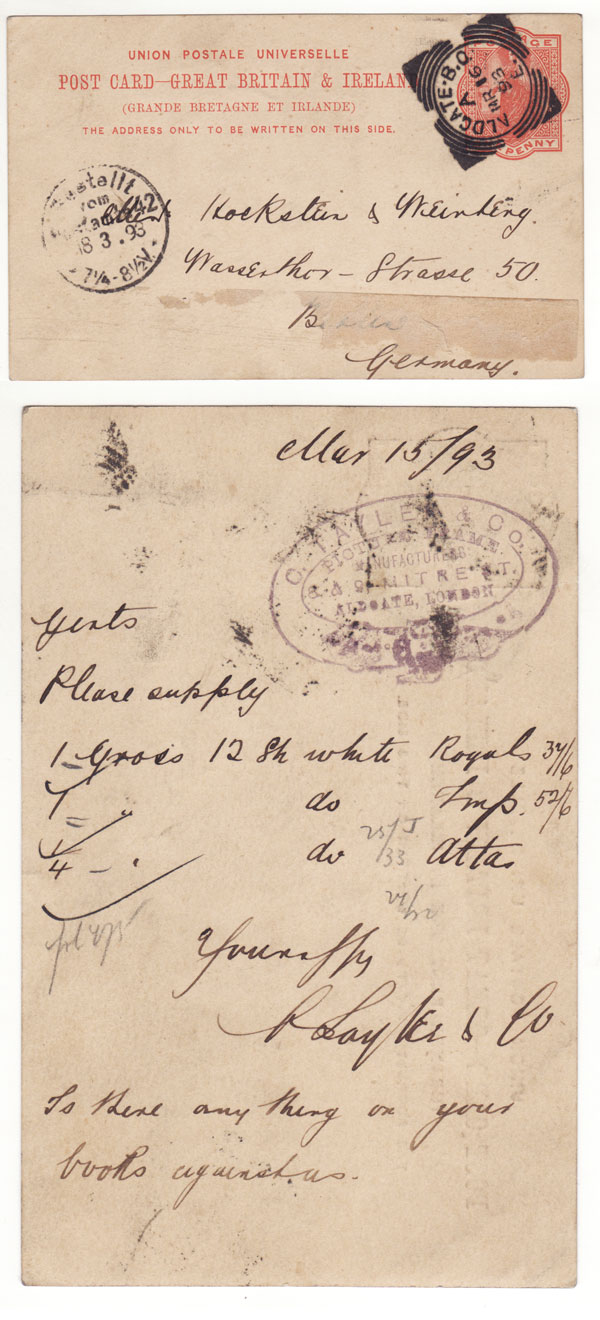 UNION POSTALE UNIVERSELLE
POST CARD—GREAT BRITAIN & IRELAND
(GRANDE BRETAGNE ET IRLANDE)
THE ADDRESS ONLY TO BE WRITTEN ON THIS SIDE.
PENNY
ALDGATE·B.O.
A
MR 15
93
E.
Bestellt
vom
42
18 3.93
7¼-8½V.
Hockstein & Weinberg.
Wasserthor-Strasse 50.
Germany.
Mar 15/93
& CO.
PICTURE FRAME
MANUFACTURERS
8 & 9 MITRE ST.
ALDGATE, LONDON
Gents
Please supply
1 Gross 12 Sh white Royals 37/6
1 " do Imp. 52/6
¼ - " do Attas
Yours
& Co
Is there any thing on your
books against us.